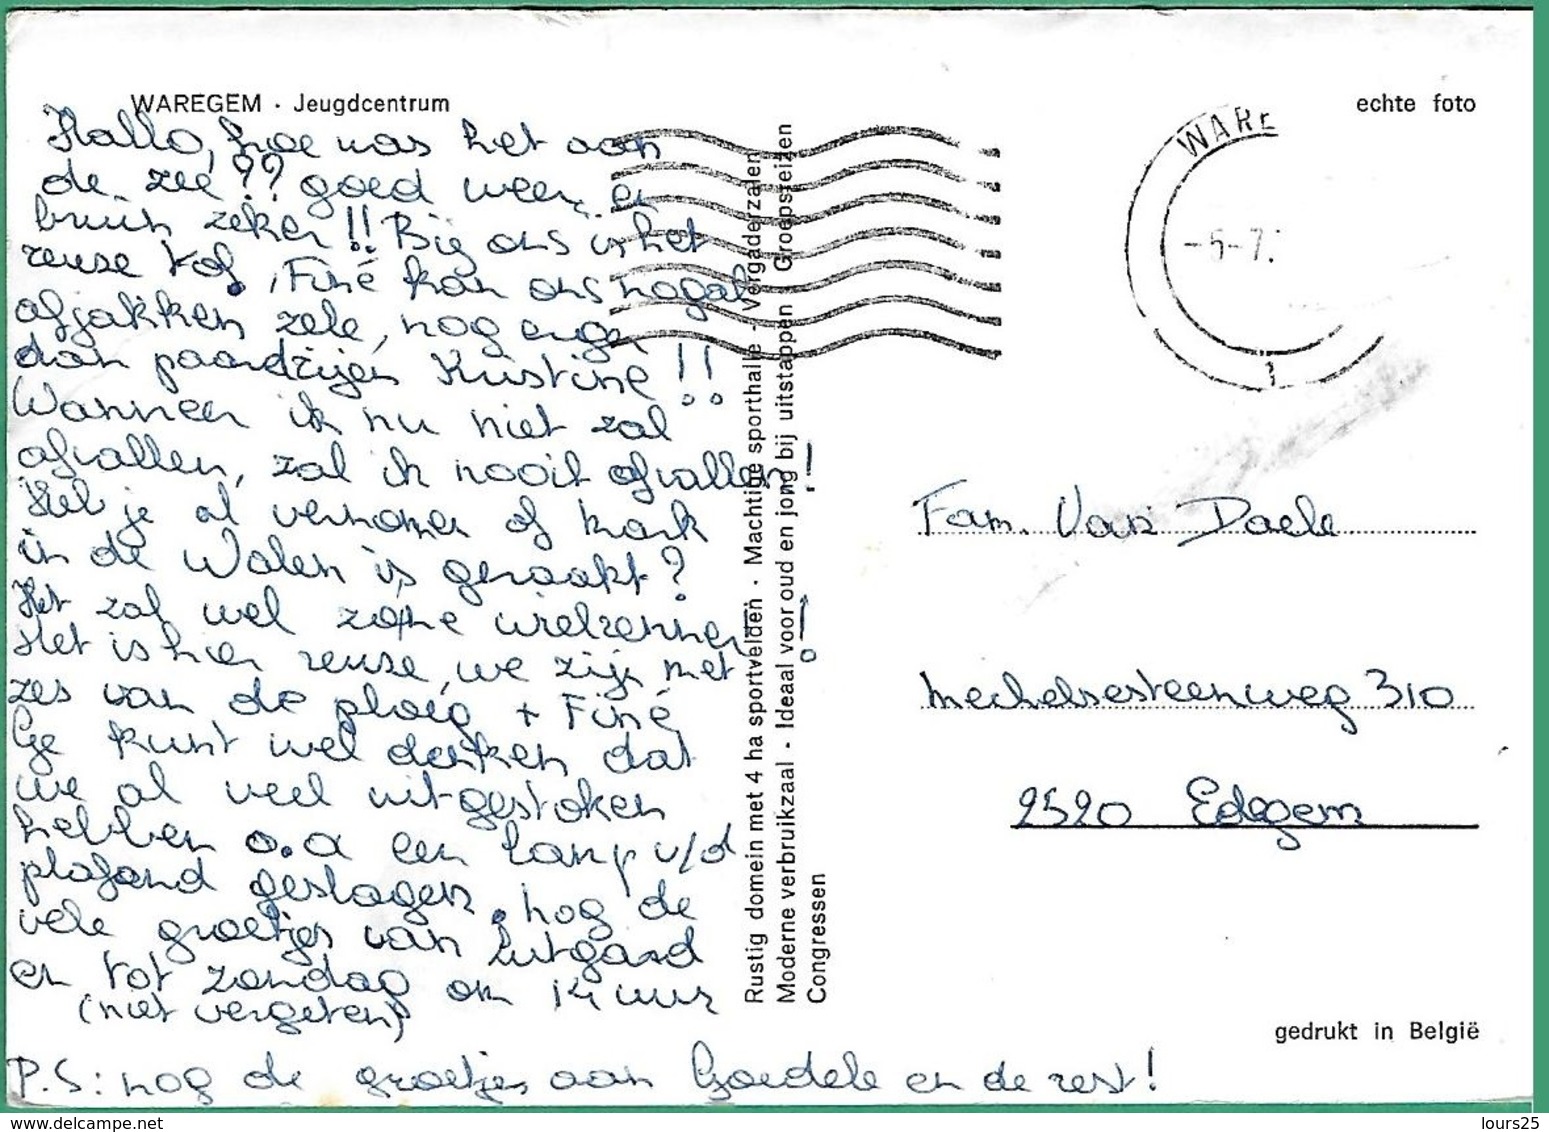 WAREGEM · Jeugdcentrum
echte foto
Hallo, hoe was het aan
de zee?? goed weer en
bruin zeker!! Bij ons is het
reuze tof, Finé kan ons nogal
afjakken zele, nog erger
dan paardrijen Kristine!!
Wanneer ik nu niet zal
afvallen, zal ik nooit afvallen!
Heb je al vernomen of Mark
in de Walen is geraakt?
Het zal wel zo'ne wielrenner!
Het is hier reuze, we zijn met
zes van de ploeg + Finé
Ge kunt wel denken dat
we al veel uitgestoken
hebben o.a een lamp v/d
plafond geslagen, nog de
vele groetjes van Lutgard
en tot zondag om 14 uur
(niet vergeten)
P.S: nog de groetjes aan Goedele en de rest!
Rustig domein met 4 ha sportvelden · Machtige sporthalle - Vergaderzalen
Moderne verbruikzaal - Ideaal voor oud en jong bij uitstappen Groepsreizen
Congressen
WARE
-5-7.
1
Fam. Van Daele
Mechelsesteenweg 310
2520 Edegem
gedrukt in België
www.delcampe.net
lours25